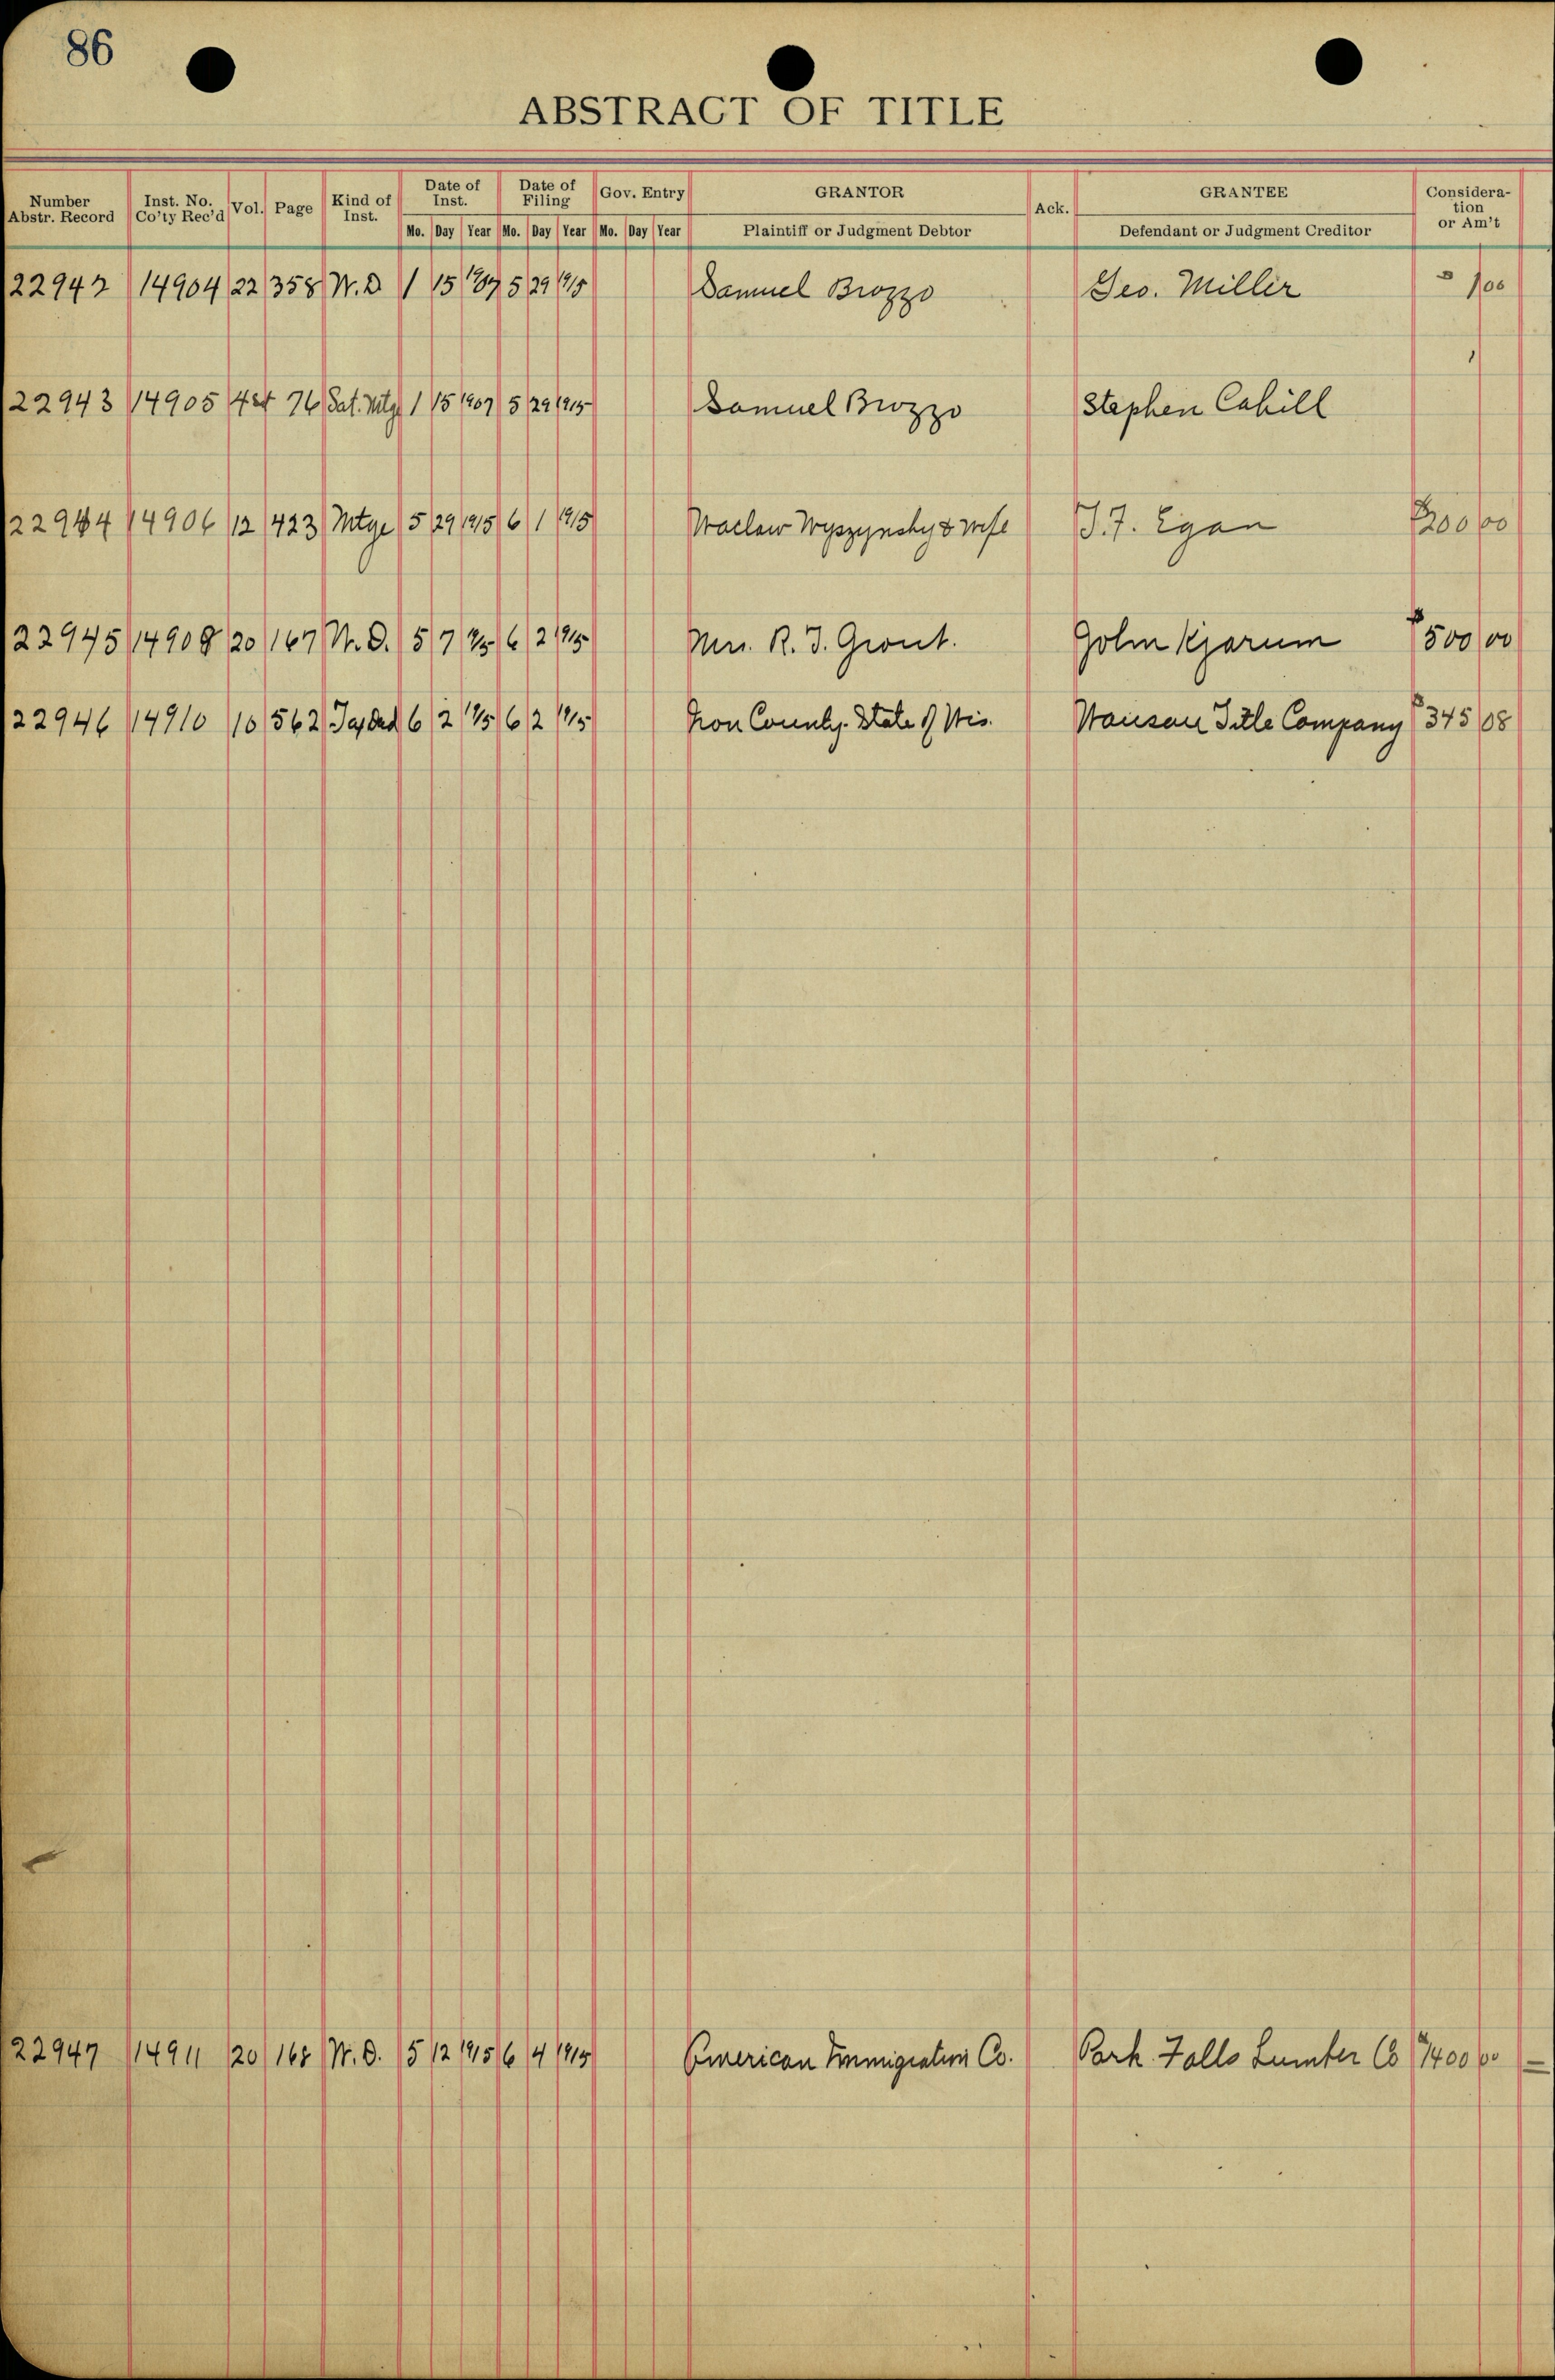 86
ABSTRACT OF TITLE
Number Abstr. Record Inst. No. Co'ty Rec'd Vol. Page Kind of Inst. Date of Inst. Date of Filing Gov. Entry GRANTOR Ack. GRANTEE Considera-tion or Am't
Mo. Day Year Mo. Day Year Mo. Day Year Plaintiff or Judgment Debtor Defendant or Judgment Creditor
22942 14904 22 358 W.D 1 15 1907 5 29 1915 Samuel Brozzo Geo. Miller 1 00
22943 14905 76 Sat. Mtg 1 15 1907 5 29 1915 Samuel Brozzo Stephen Cahill
22944 14906 12 423 Mtge 5 29 1915 6 1 1915 Waclaw Wyszynsky & wife J. F. Egan $200 00
22945 14908 20 167 W.D. 5 7 1915 6 2 1915 Mrs. R. J. Grout. John Kjarum $500 00
22946 14910 10 562 Tax Ded 6 2 1915 6 2 1915 Iron County. State of Wis. Wausau Title Company $345 08
22947 14911 20 168 W.D. 5 12 1915 6 4 1915 American Immigration Co. Park Falls Lumber Co 1400 00